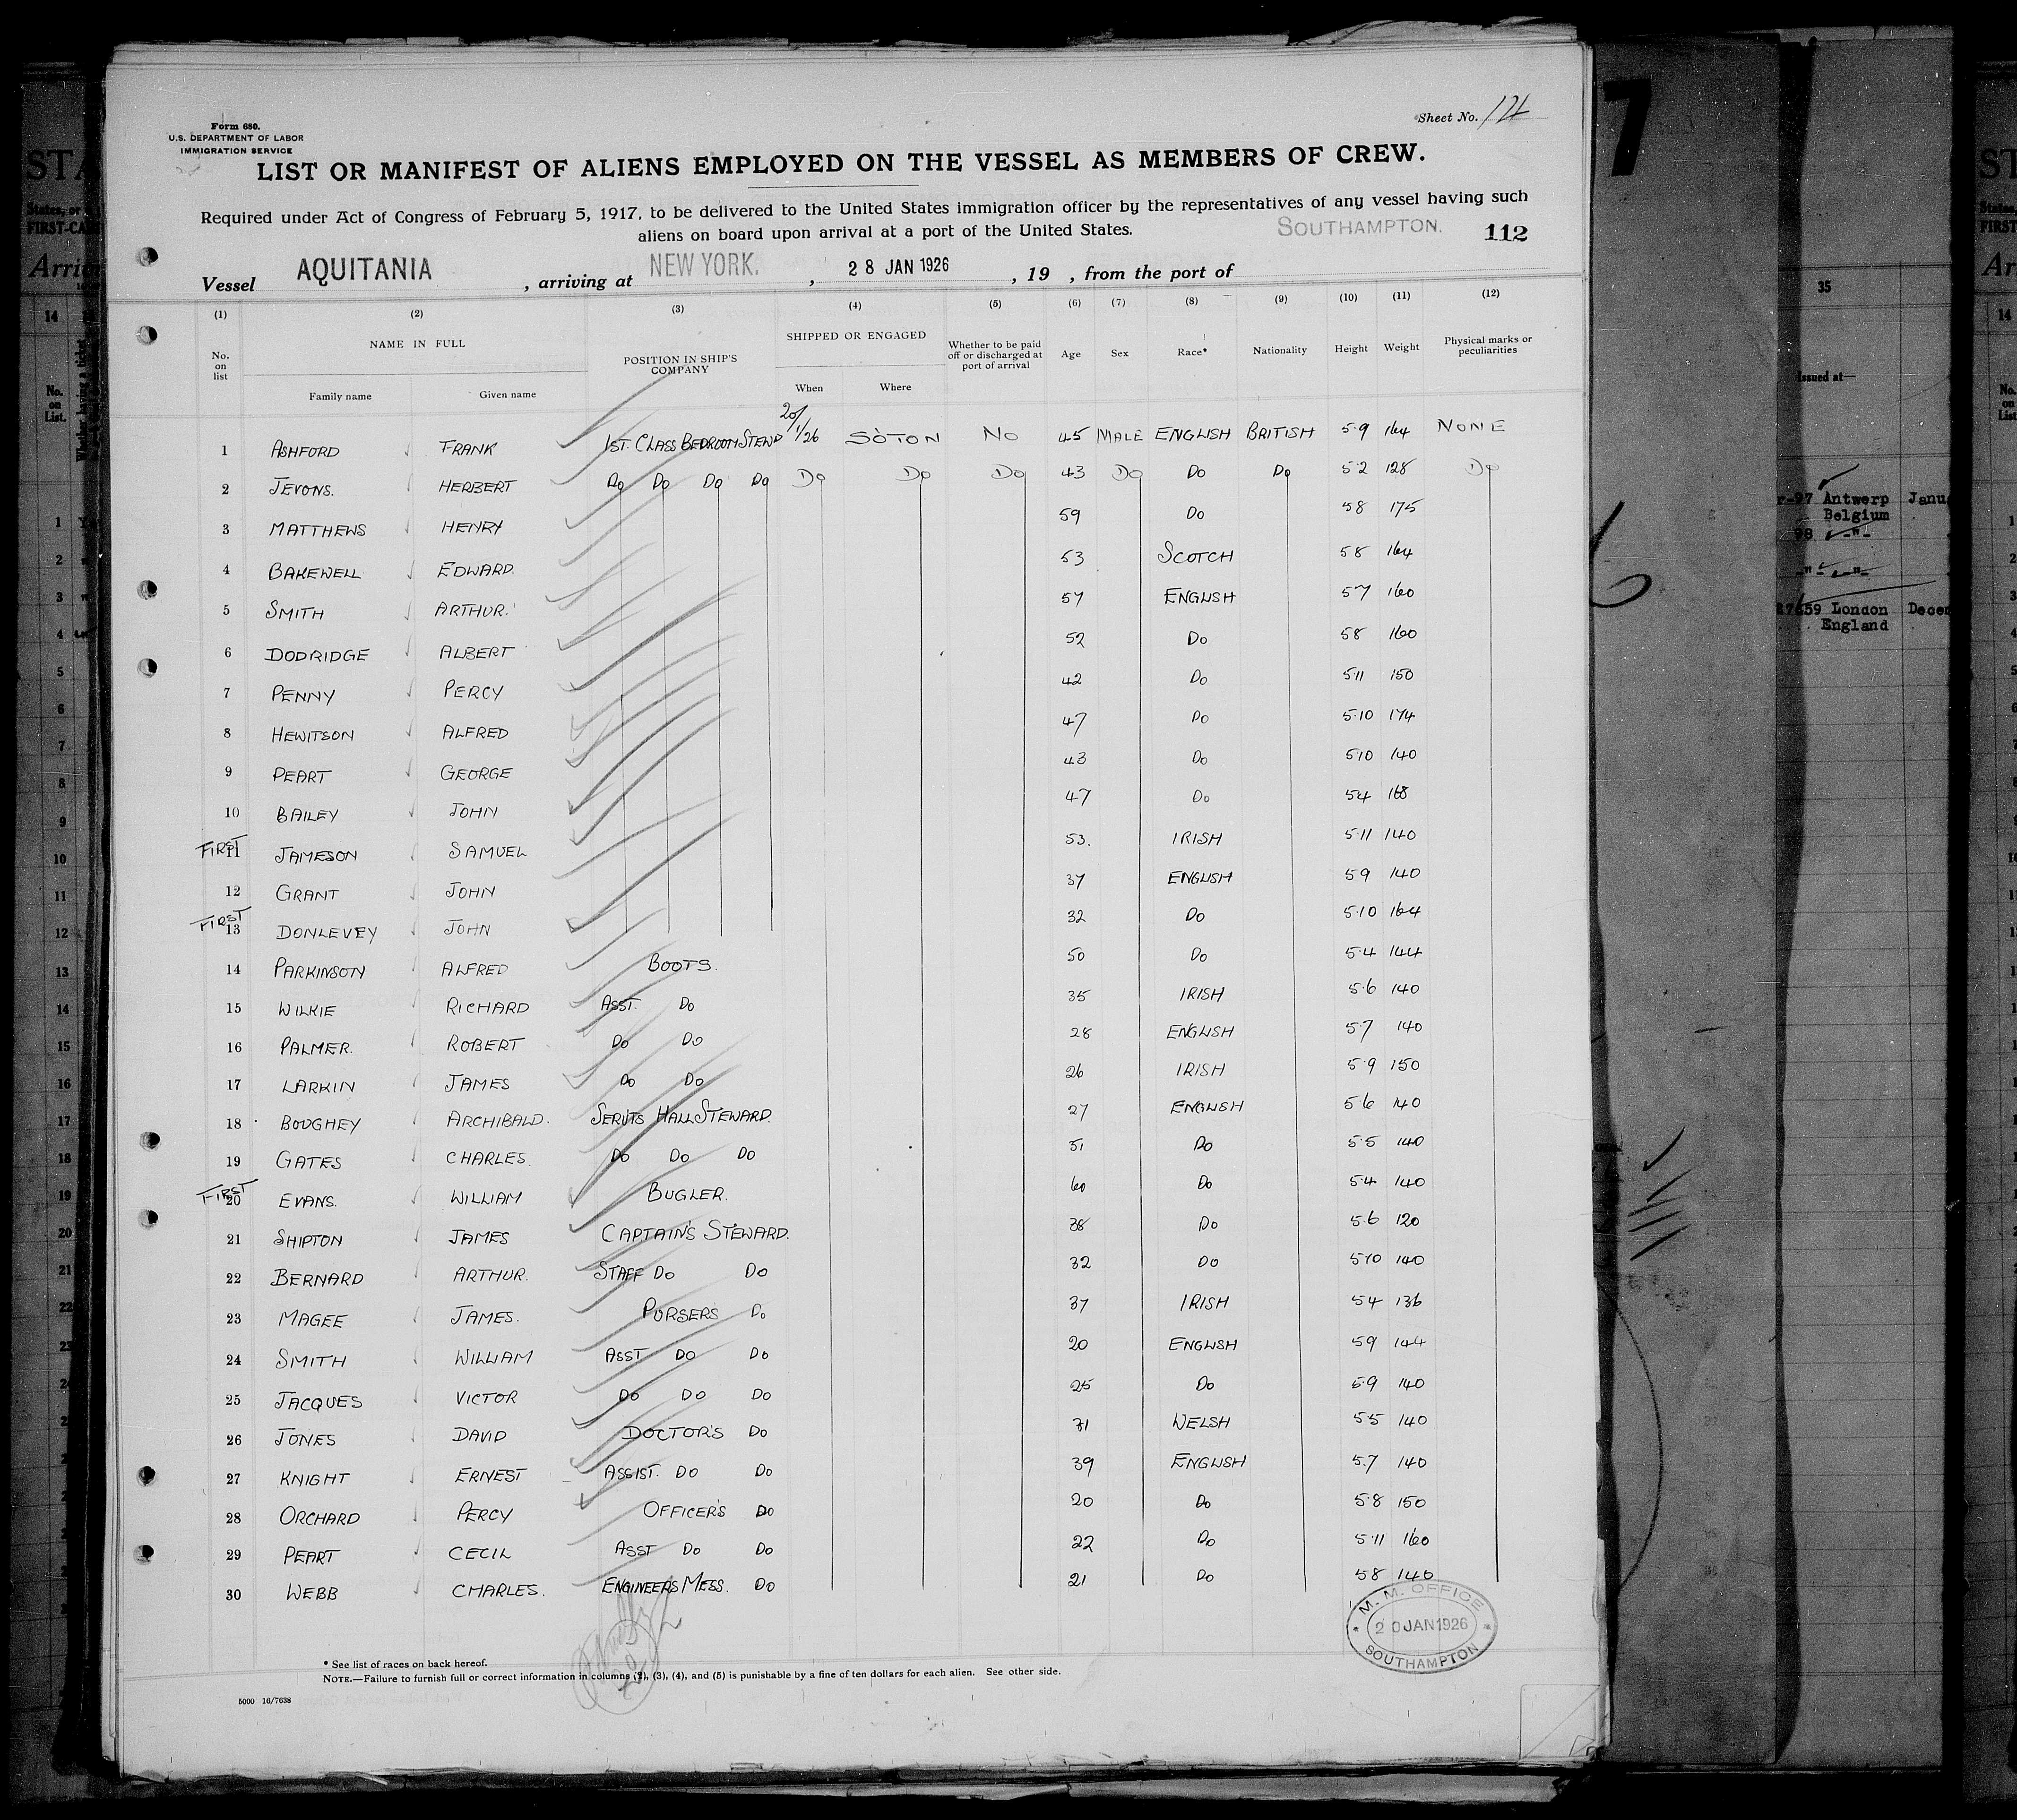 Form 680.
U.S. DEPARTMENT OF LABOR
IMMIGRATION SERVICE
Sheet No.
LIST OR MANIFEST OF ALIENS EMPLOYED ON THE VESSEL AS MEMBERS OF CREW.
Required under Act of Congress of February 5, 1917, to be delivered to the United States immigration officer by the representatives of any vessel having such
aliens on board upon arrival at a port of the United States. SOUTHAMPTON. 112
Vessel AQUITANIA, arriving at NEW YORK., 28 JAN 1926, 19 , from the port of
(1) (2) (3) (4) (5) (6) (7) (8) (9) (10) (11) (12)
No. on list NAME IN FULL POSITION IN SHIP'S COMPANY SHIPPED OR ENGAGED Whether to be paid off or discharged at port of arrival Age Sex Race* Nationality Height Weight Physical marks or peculiarities
Family name Given name When Where
1 ASHFORD FRANK 1ST. CLASS BEDROOM STEWD 20/1/26 SOTON NO 45 MALE ENGLISH BRITISH 5 9 164 NONE
2 JEVONS. HERBERT Do Do Do Do Do Do Do 43 Do Do Do 5 2 128 Do
3 MATTHEWS HENRY 59 Do 5 8 175
4 BAKEWELL EDWARD. 53 SCOTCH 5 8 164
5 SMITH ARTHUR. 57 ENGLISH 5 7 160
6 DODRIDGE ALBERT 52 Do 5 8 160
7 PENNY PERCY 42 Do 5 11 150
8 HEWITSON ALFRED 47 Do 5.10 174
9 PEART GEORGE 43 Do 5 10 140
10 BAILEY JOHN 47 Do 5 4 168
FIRST 11 JAMESON SAMUEL 53. IRISH 5.11 140
12 GRANT JOHN 37 ENGLISH 5 9 140
FIRST 13 DONLEVEY JOHN 32 Do 5.10 164
14 PARKINSON ALFRED BOOTS. 50 Do 5.4 144
15 WILKIE RICHARD ASST. Do 35 IRISH 5.6 140
16 PALMER. ROBERT Do Do 28 ENGLISH 5.7 140
17 LARKIN JAMES Do Do 26 IRISH 5.9 150
18 BOUGHEY ARCHIBALD. SERVTS HALL STEWARD. 27 ENGLISH 5.6 140
19 GATES CHARLES. Do Do Do 51 Do 5.5 140
FIRST 20 EVANS. WILLIAM BUGLER. 60 Do 5.4 140
21 SHIPTON JAMES CAPTAIN'S STEWARD. 38 Do 5.6 120
22 BERNARD ARTHUR. STAFF Do Do 32 Do 5 10 140
23 MAGEE JAMES. PURSERS Do 37 IRISH 5 4 136
24 SMITH WILLIAM ASST Do Do 20 ENGLISH 5 9 144
25 JACQUES VICTOR Do Do Do 25 Do 5.9 140
26 JONES DAVID DOCTOR'S Do 31 WELSH 5 5 140
27 KNIGHT ERNEST ASSIST. Do Do 39 ENGLISH 5.7 140
28 ORCHARD PERCY OFFICER'S Do 20 Do 5.8 150
29 PEART CECIL ASST Do Do 22 Do 5.11 160
30 WEBB CHARLES. ENGINEERS MESS. Do 21 Do 5 8 140
M. M. OFFICE
20 JAN 1926
SOUTHAMPTON
* See list of races on back hereof.
NOTE.—Failure to furnish full or correct information in columns (2), (3), (4), and (5) is punishable by a fine of ten dollars for each alien. See other side.
5000 16/7638
7
35
Issued at—
Antwerp
Belgium
London
England